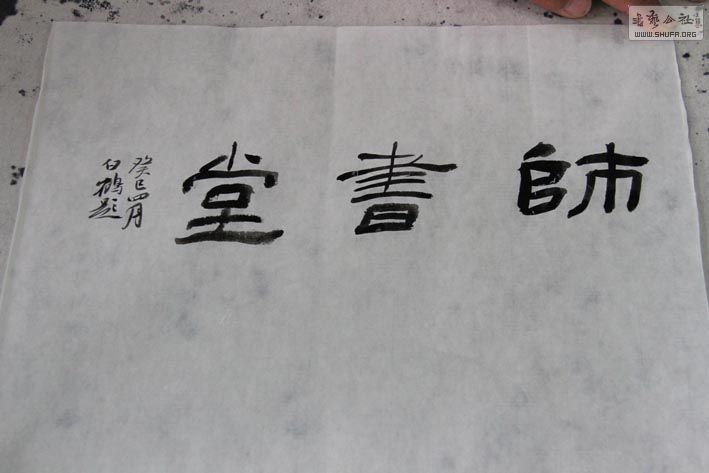 師書堂
癸巳四月
白鶴題
书艺公社
WWW.SHUFA.ORG